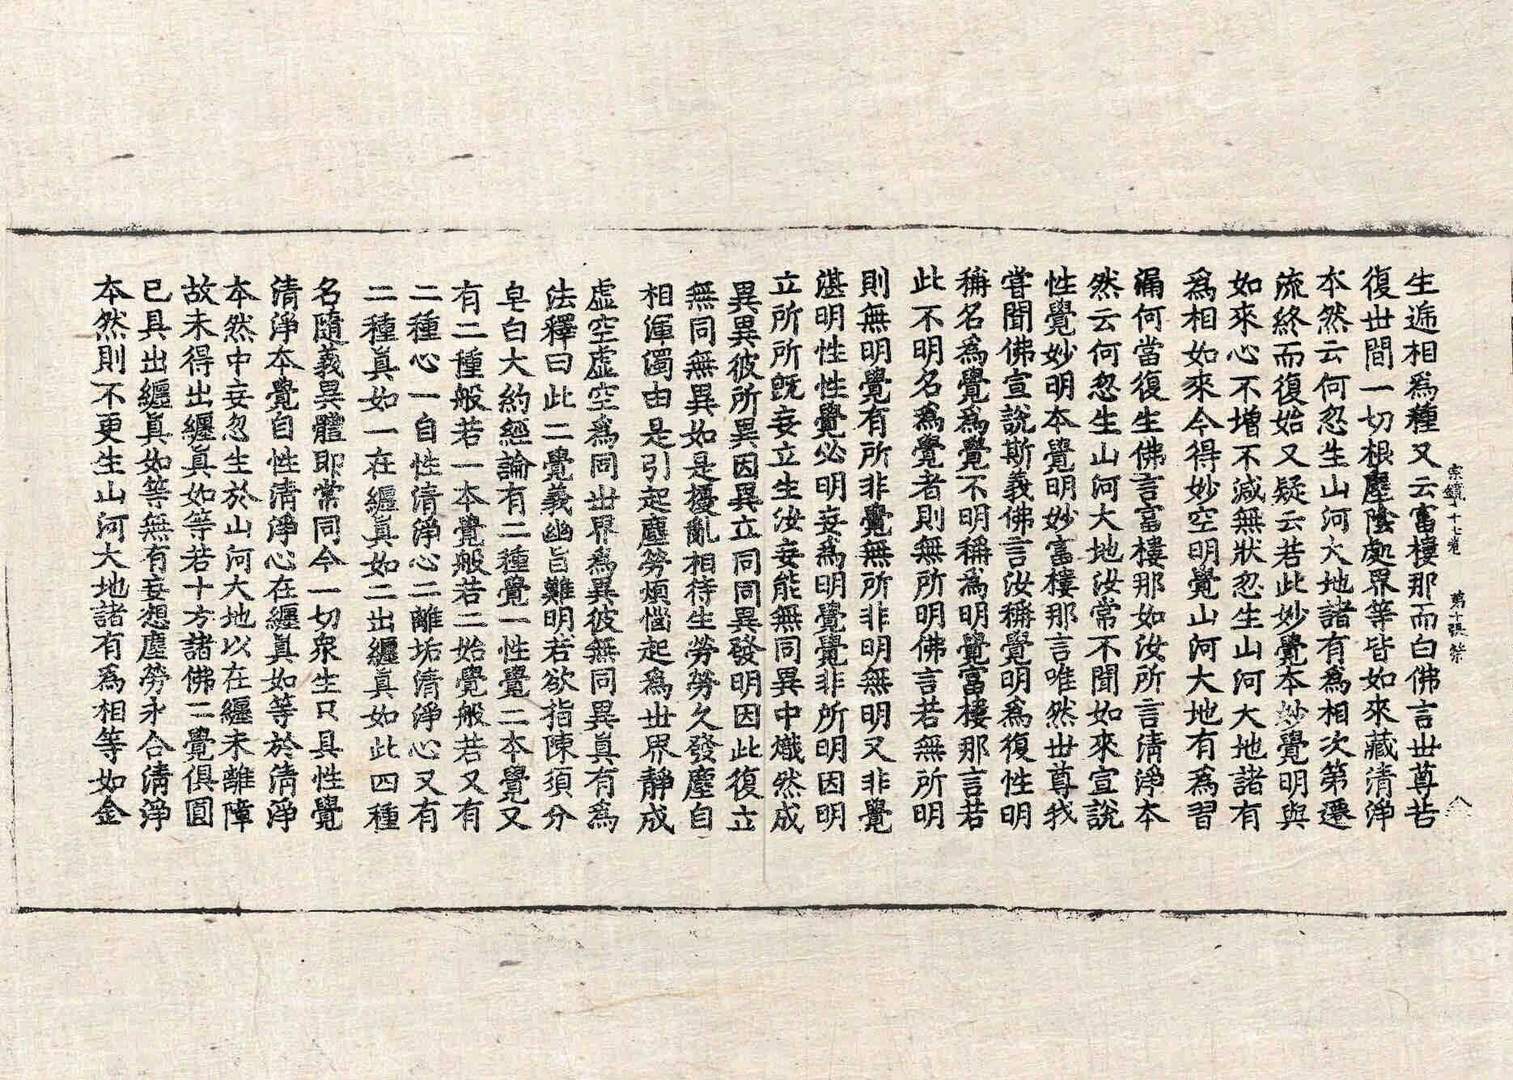 宗鏡十七卷 第十張 榮
生遞相爲種又云富樓那而白佛言世尊若
復世間一切根塵陰處界等皆如來藏清淨
本然云何忽生山河大地諸有爲相次第遷
流終而復始又疑云若此妙覺本妙覺明與
如來心不增不減無狀忽生山河大地諸有
爲相如來今得妙空明覺山河大地有爲習
漏何當復生佛言富樓那如汝所言清淨本
然云何忽生山河大地汝常不聞如來宣說
性覺妙明本覺明妙富樓那言唯然世尊我
甞聞佛宣說斯義佛言汝稱覺明爲復性明
稱名爲覺爲覺不明稱爲明覺富樓那言若
此不明名爲覺者則無所明佛言若無所明
則無明覺有所非覺無所非明無明又非覺
湛明性性覺必明妄爲明覺覺非所明因明
立所所旣妄立生汝妄能無同異中熾然成
異異彼所異因異立同同異發明因此復立
無同無異如是擾亂相待生勞勞久發塵自
相渾濁由是引起塵勞煩惱起爲世界靜成
虛空虛空爲同世界爲異彼無同異眞有爲
法釋曰此二覺義幽旨難明若欲指陳須分
皁白大約經論有二種覺一性覺二本覺又
有二種般若一本覺般若二始覺般若又有
二種心一自性清淨心二離垢清淨心又有
二種眞如一在纏眞如二出纏眞如此四種
名隨義異體即常同今一切衆生只具性覺
清淨本覺自性清淨心在纏眞如等於清淨
本然中妄忽生於山河大地以在纏未離障
故未得出纏眞如等若十方諸佛二覺俱圓
已具出纏眞如等無有妄想塵勞永合清淨
本然則不更生山河大地諸有爲相等如金